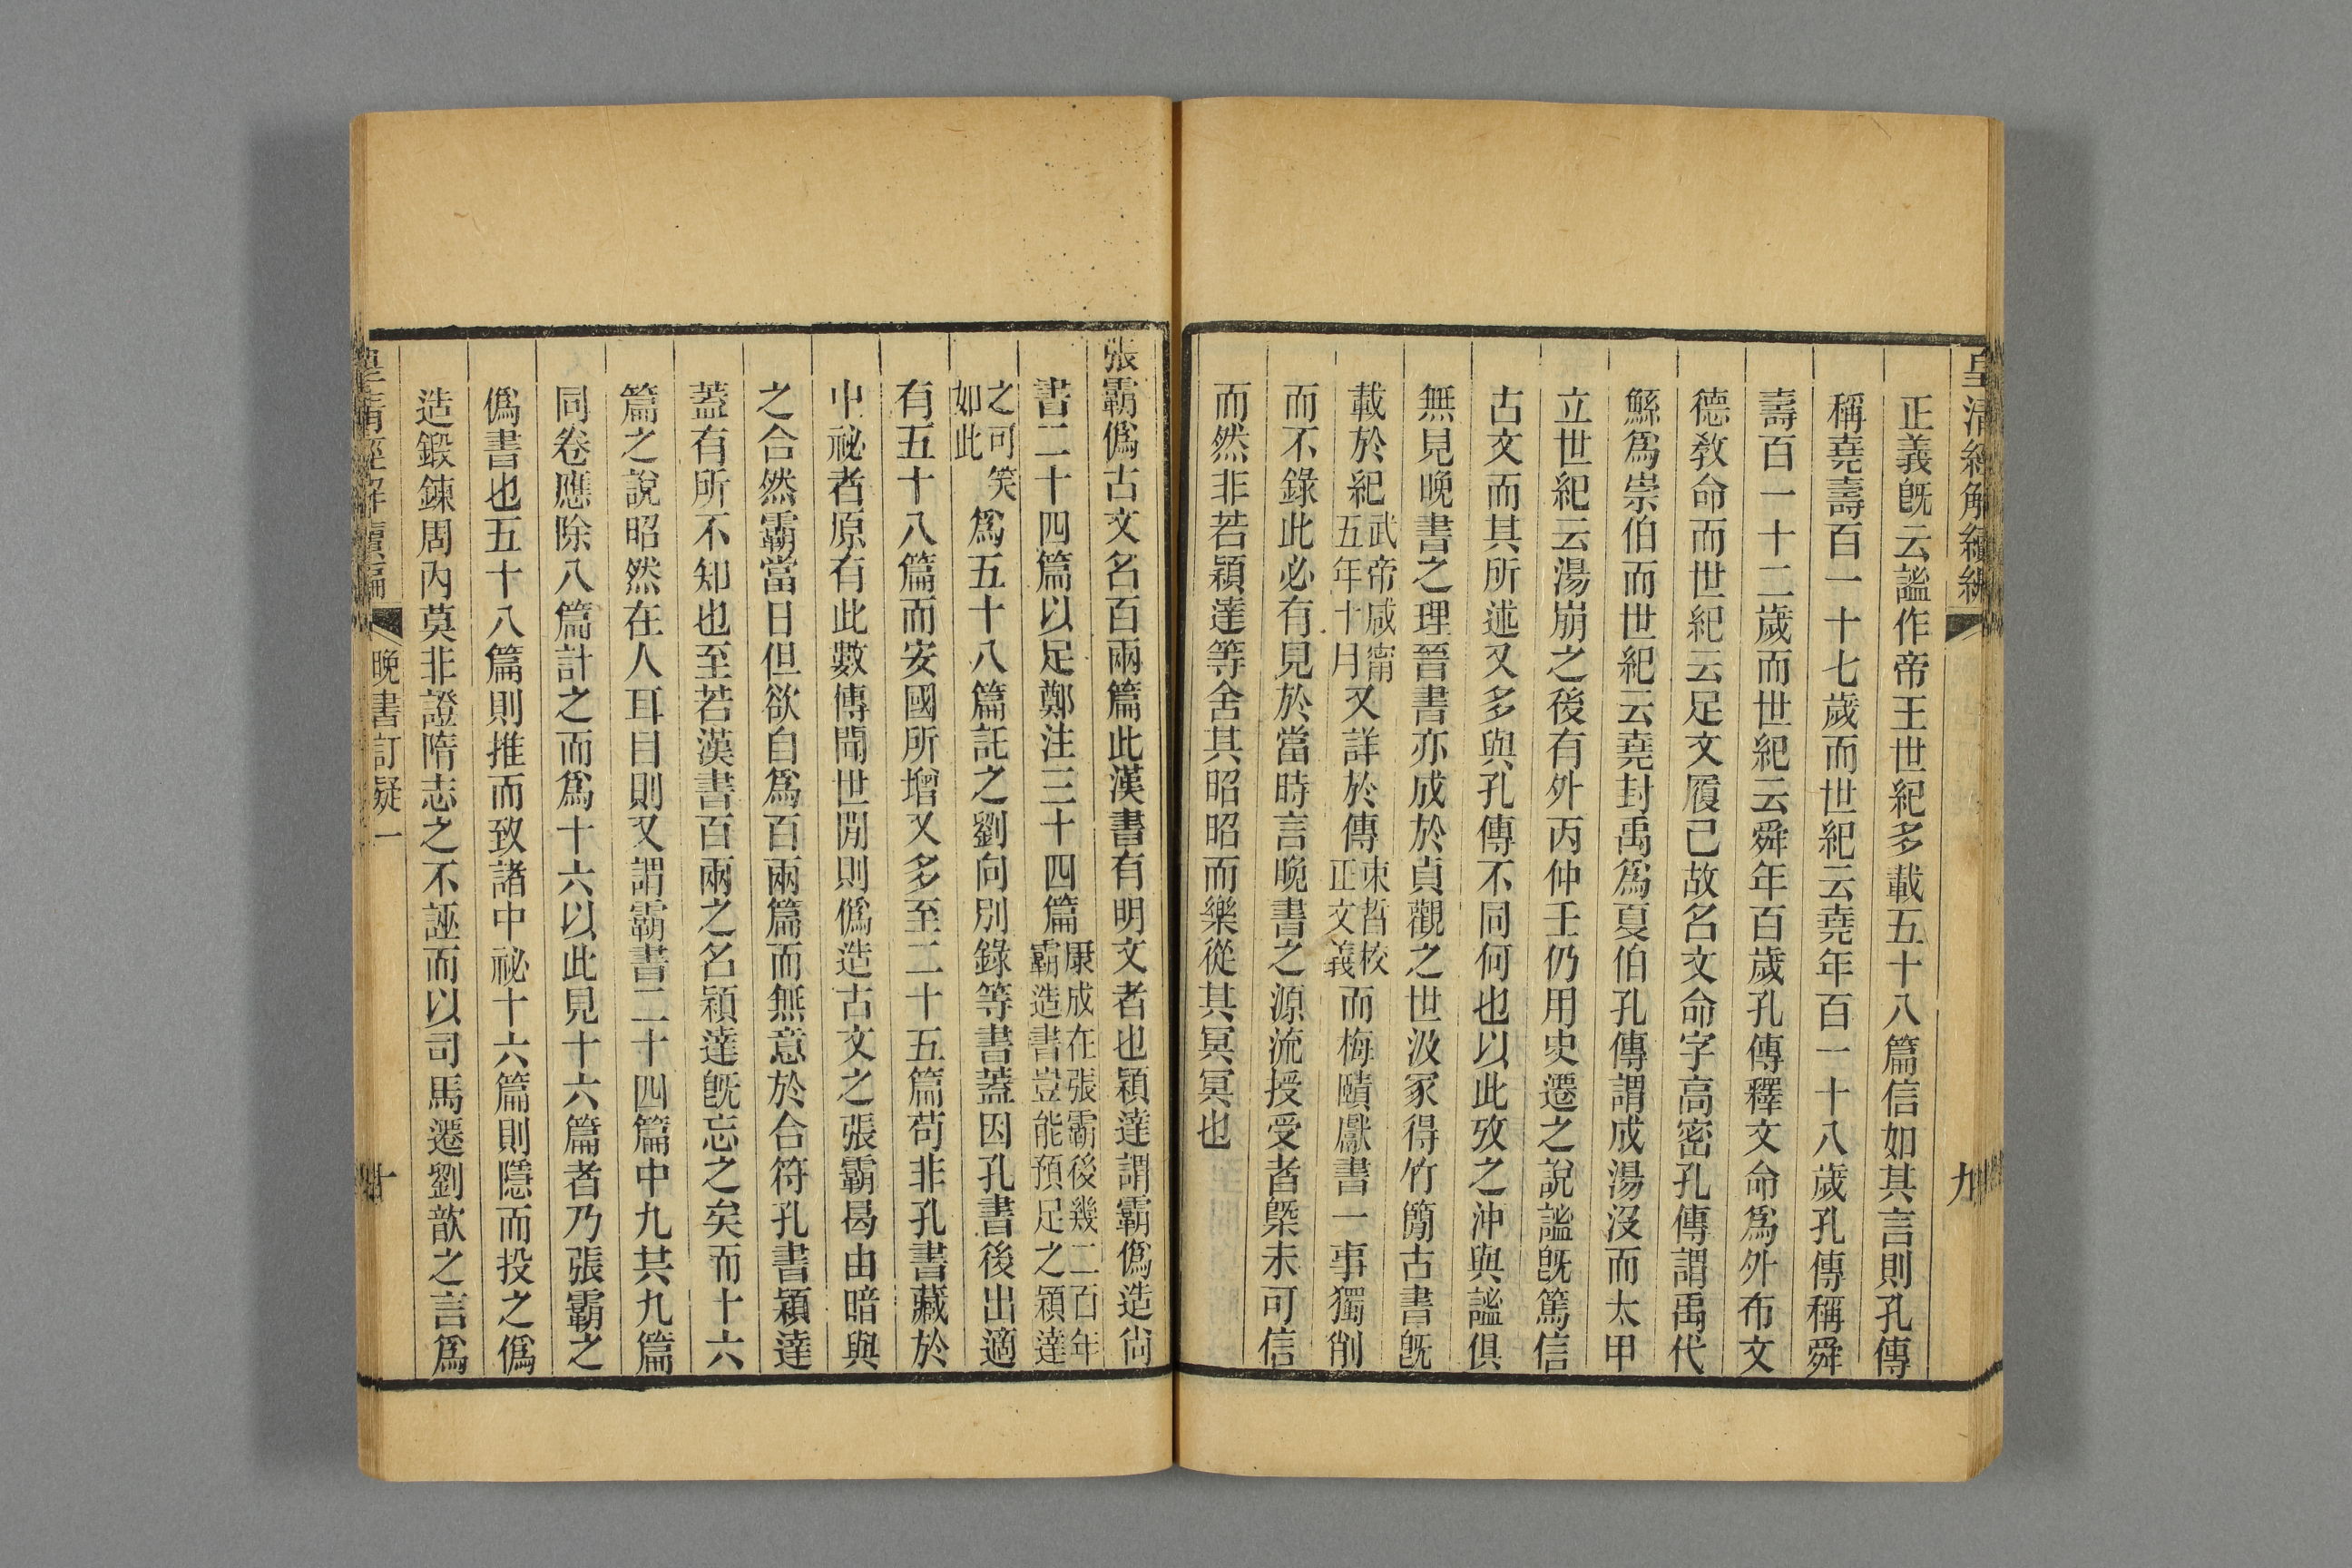 皇清經解續編
九
正義旣云謐作帝王世紀多載五十八篇信如其言則孔傳
稱堯壽百一十七歲而世紀云堯年百一十八歲孔傳稱舜
壽百一十二歲而世紀云舜年百歲孔傳釋文命爲外布文
德敎命而世紀云足文履己故名文命字高密孔傳謂禹代
鯀爲崇伯而世紀云堯封禹爲夏伯孔傳謂成湯沒而太甲
立世紀云湯崩之後有外丙仲壬仍用史遷之說謐旣篤信
古文而其所述又多與孔傳不同何也以此攷之沖與謐俱
無見晚書之理晉書亦成於貞觀之世汲冢得竹簡古書旣
載於紀武帝咸甯五年十月又詳於傳束晳校正文義而梅賾獻書一事獨削
而不錄此必有見於當時言晚書之源流授受者槩未可信
而然非若穎達等舍其昭昭而樂從其冥冥也
張霸僞古文名百兩篇此漢書有明文者也穎達謂霸僞造尙
書二十四篇以足鄭注三十四篇康成在張霸後幾二百年霸造書豈能預足之穎達
之可笑如此爲五十八篇託之劉向別錄等書蓋因孔書後出適
有五十八篇而安國所增又多至二十五篇苟非孔書藏於
中祕者原有此數傳聞世閒則僞造古文之張霸曷由暗與
之合然霸當日但欲自爲百兩篇而無意於合符孔書穎達
蓋有所不知也至若漢書百兩之名穎達旣忘之矣而十六
篇之說昭然在人耳目則又謂霸書二十四篇中九共九篇
同卷應除八篇計之而爲十六以此見十六篇者乃張霸之
僞書也五十八篇則推而致諸中祕十六篇則隱而投之僞
造鍛鍊周內莫非證隋志之不誣而以司馬遷劉歆之言爲
皇淸經解續編
晚書訂疑一
十